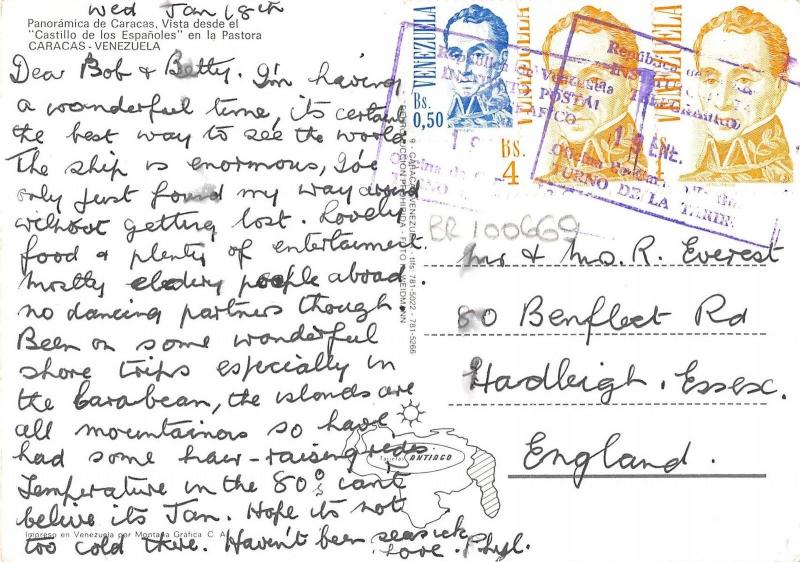 Wed Jan 18th
Panorámica de Caracas, Vista desde el
"Castillo de los Españoles" en la Pastora
CARACAS - VENEZUELA
Dear Bob & Betty. I'm having
a wonderful time, its certain
the best way to see the world
The ship is enormous, I've
only just found my way around
without getting lost. Lovely
food & plenty of entertainment
mostly eldery people aboad
no dancing partners though
Been on some wonderful
shore trips especially in
the Carabean, the islands are
all mountainors so have
had some hair-raising rides
Temperature in the 80°s can't
belive its Jan. Hope its not
too cold there. Haven't been seasick
Love. Phyl.
Impreso en Venezuela por Montana Gráfica C. A.
Tarjetas ANTIAGO
CARACAS VENEZUELA - tlfs: 781-5022 - 781-5266
REPRODUCCION PROHIBIDA - FOTO WEIDMANN
VENEZUELA
Bs.
0,50
VENEZUELA
Bs.
4
VENEZUELA
4
República de Venezuela
INSTITUTO POSTAL
República de
INST
TELEGRAFICO
19 ENE.
Oficina de
TURNO DE LA TARDE
BR 100669
Mr & Mrs. R. Everest
80 Benfleet Rd
Hadleigh. Essex.
England.